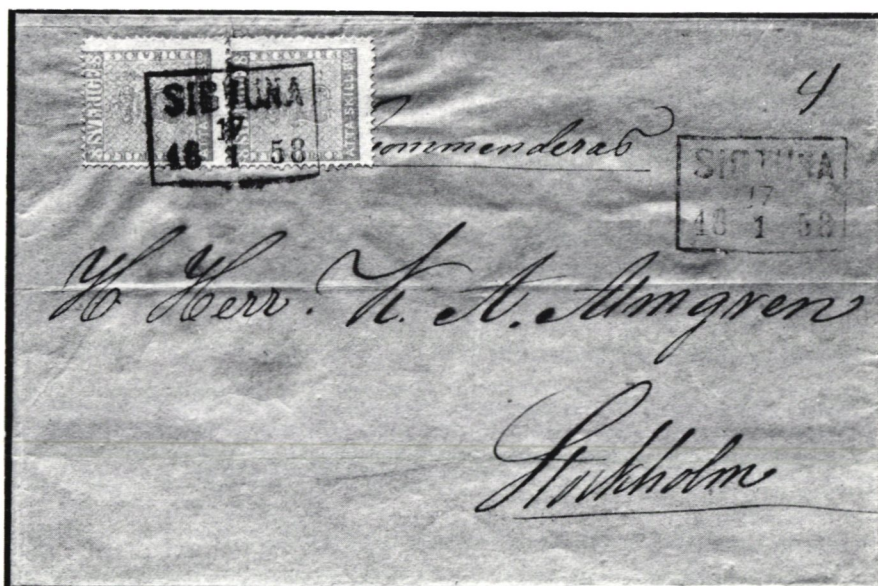 SVERIGES
SIGTUNA
17
18 1 58
4
Recommenderas
SIGTUNA
17
18 1 58
H Herr. K. A. Almgren
Stockholm